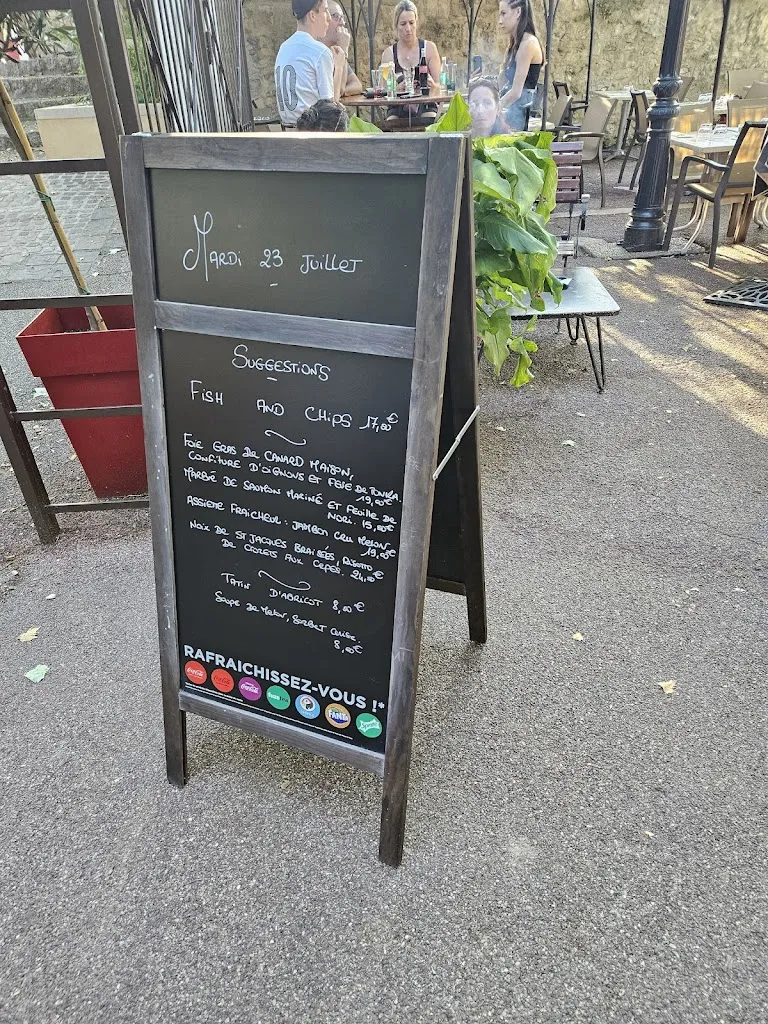 10
Mardi 23 Juillet
Suggestions
Fish and Chips 17,00€
Foie gras de canard maison,
confiture d'oignons et fève de Tonka.
19,00€
Marbré de saumon mariné et feuille de
nori. 15,00€
Assiette fraicheur: jambon cru melon
19,00€
Noix de St Jacques braisées, risotto
de crozets aux cepes. 24,00€
Tatin d'abricot 8,00€
Soupe de melon, sorbet
8,00€
RAFRAICHISSEZ-VOUS !*
Coca-Cola Coca-Cola Coca-Cola fuzetea FANTA Sprite